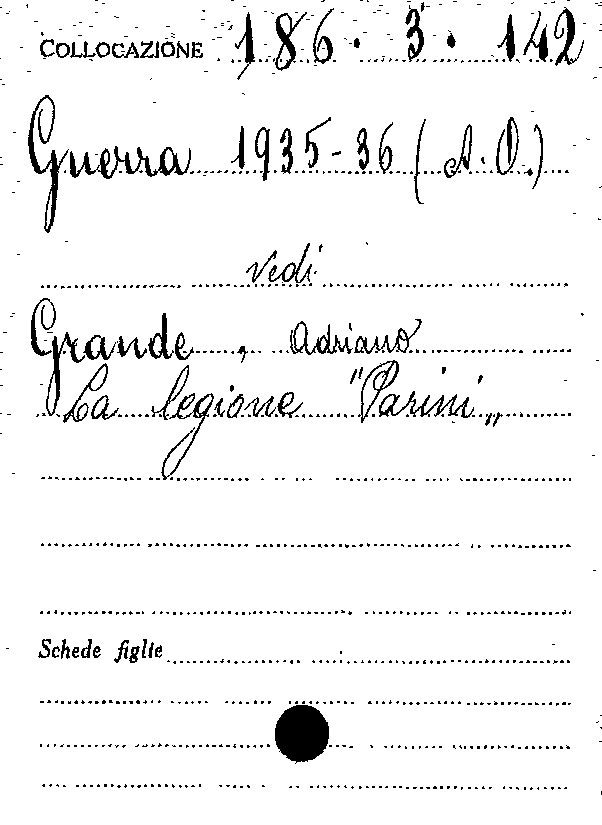 COLLOCAZIONE 186. 3. 142
Guerra 1935-36 (A.O.)
vedi
Grande, Adriano
La legione "Parini„
Schede figlie